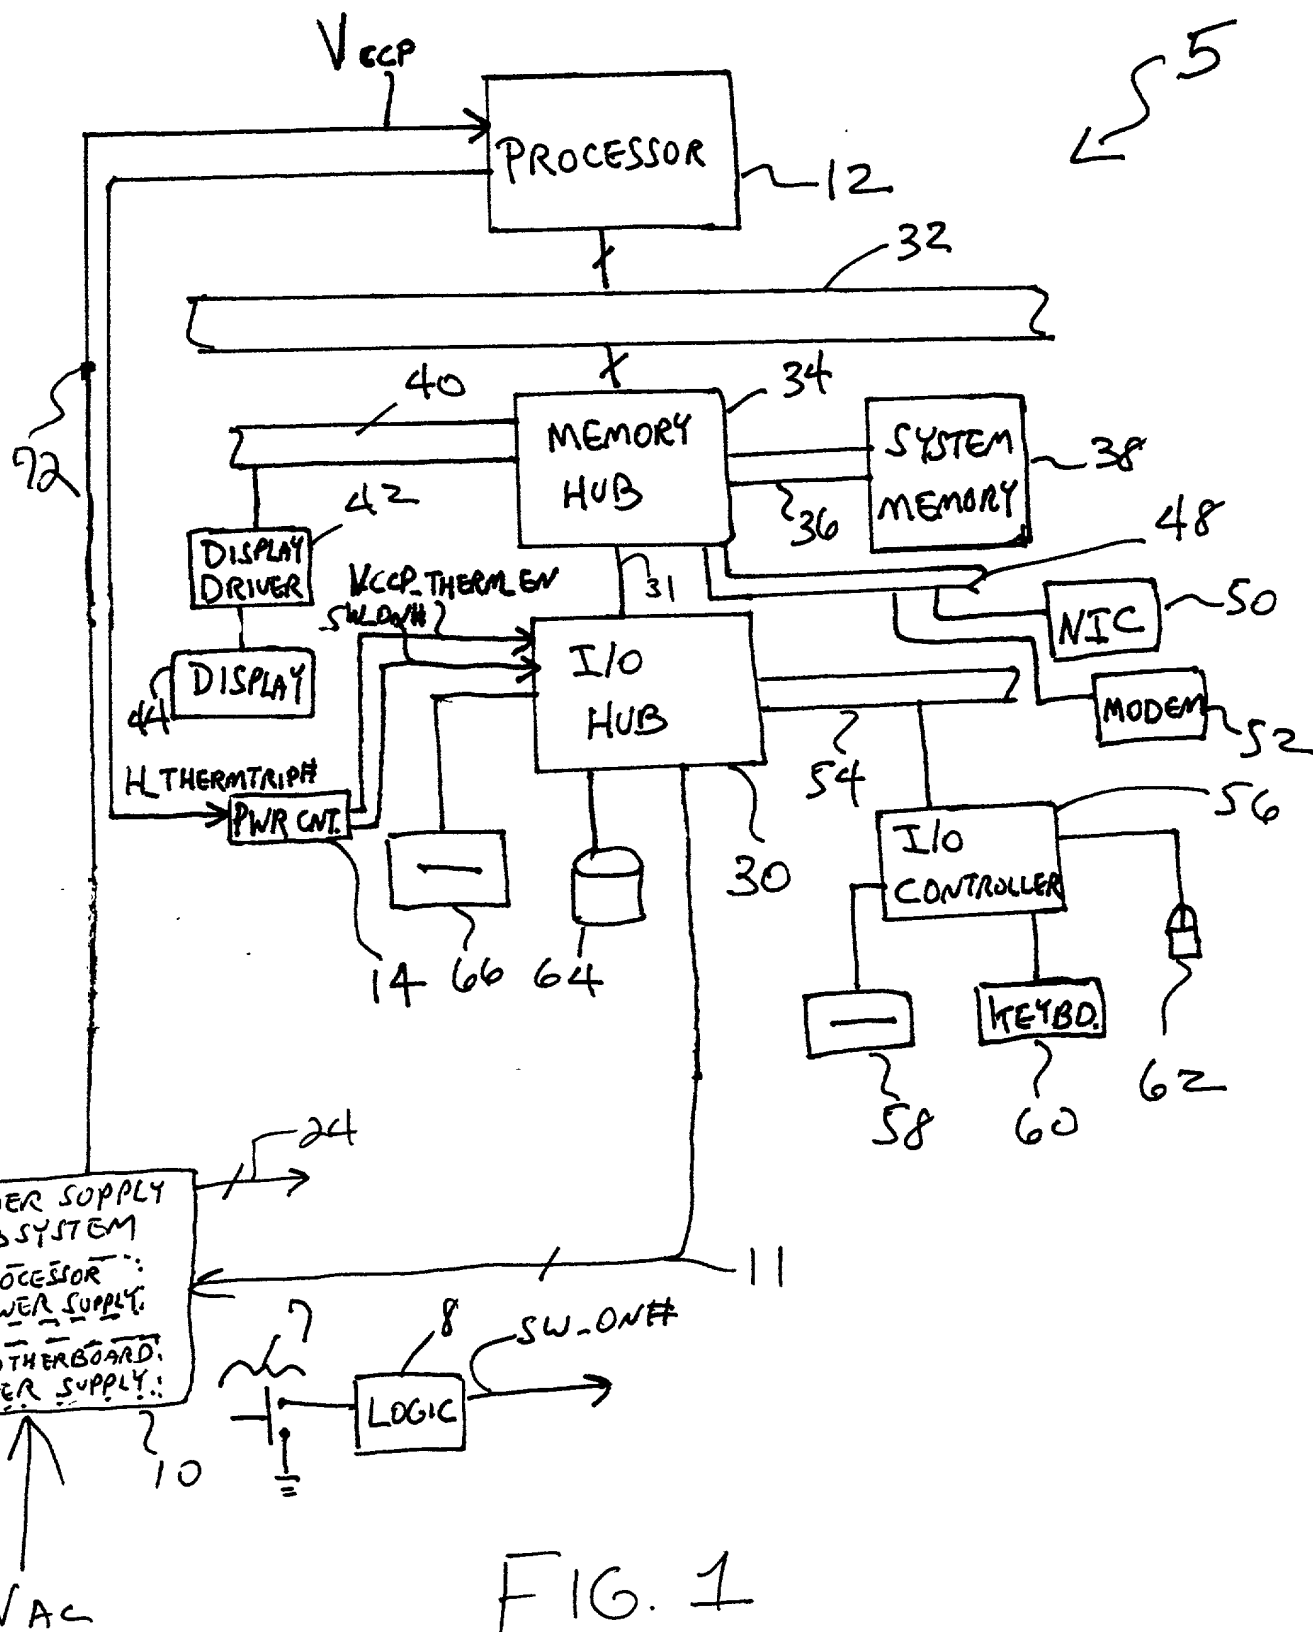 VCCP
5
PROCESSOR
12
32
40
34
MEMORY
HUB
SYSTEM
MEMORY
38
36
72
42
48
DISPLAY
DRIVER
VCCP_THERM_EN
31
NIC
50
I/O
HUB
DISPLAY
44
MODEM
52
54
H_THERMTRIP#
PWR CNT.
56
I/O
CONTROLLER
30
14
66
64
KEYBD.
62
58
60
24
ER SUPPLY
SYSTEM
OCESSOR
WER SUPPLY
OTHERBOARD
ER SUPPLY
11
7
8
SW_ON#
LOGIC
10
VAC
FIG. 1